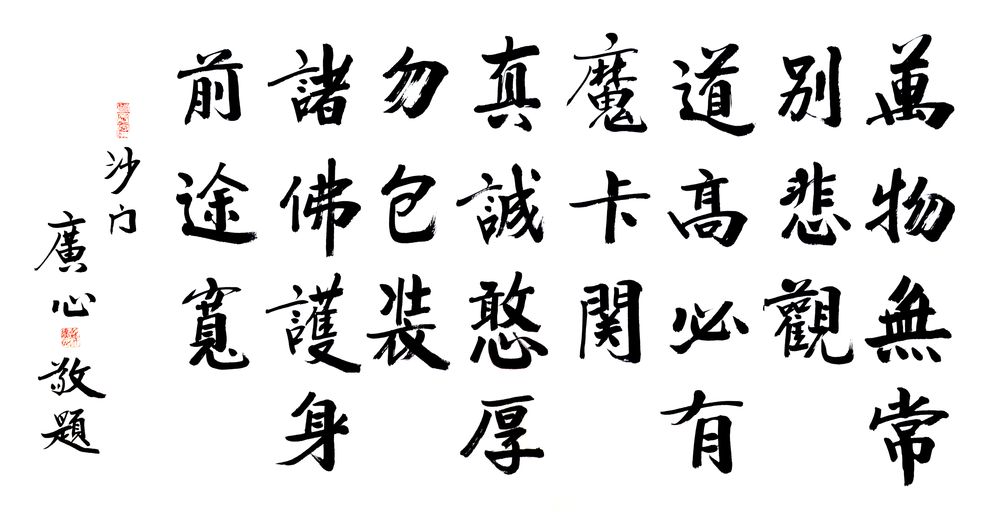 萬物無常
別悲觀
道高必有
魔卡関
真誠憨厚
勿包裝
諸佛護身
前途寬
沙门
廣心敬題